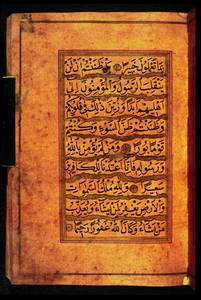 بما تعملون خبيرا بل ظننتم ان لن
ينقلب الرسول والمؤمنون الى
اهليهم ابدا وزين ذلك في قلوبكم
وظننتم ظن السوء وكنتم
قوما بورا ومن لم يؤمن بالله
ورسوله فانا اعتدنا للكافرين
سعيرا ولله ملك السموات
والارض يغفر لمن يشاء ويعذب
من يشاء وكان الله غفورا رحيما